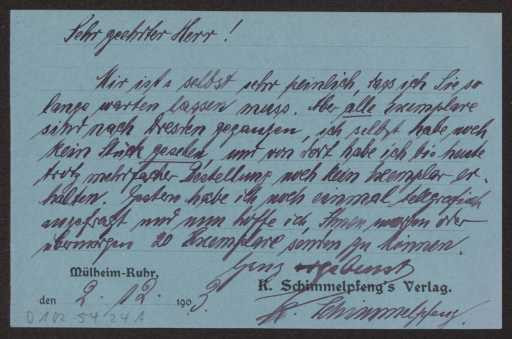 Sehr geehrter Herr!
Mir ist es selbst sehr peinlich, dass ich Sie so
lange warten lassen muss. Aber alle Exemplare
sind nach Dresden gegangen, ich selbst habe noch
kein Stück gesehen, und von dort habe ich bis heute
trotz mehrfacher Bestellung noch kein Exemplar er-
halten. Gestern habe ich noch einmal telegrafisch
angefragt und nun hoffe ich, Ihnen morgen oder
übermorgen 20 Exemplare senden zu können.
Ganz ergebenst
Mülheim-Ruhr,
K. Schimmelpfeng's Verlag.
den 2. 12. 1903
K. Schimmelpfeng.
D 102-54-24 1